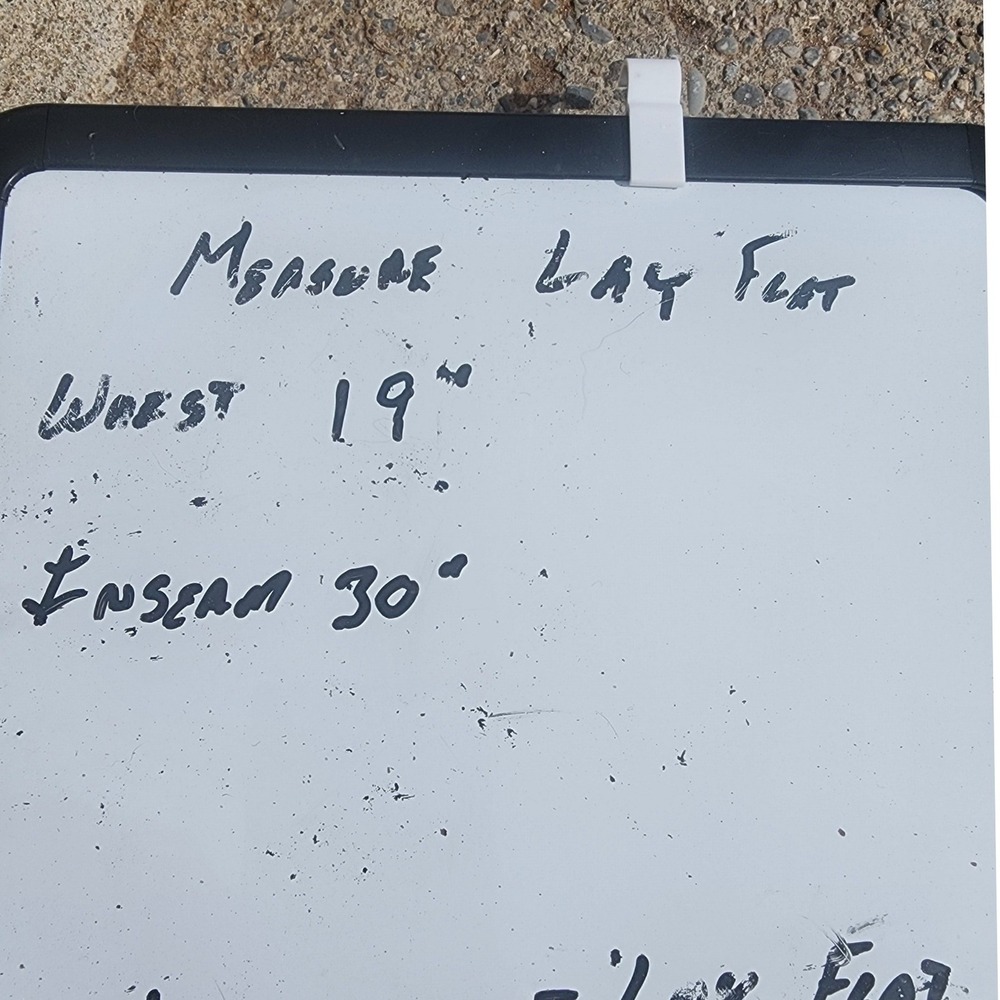 MEASURE LAY FLAT
WAEST 19"
INSEAM 30"
LAY FLAT